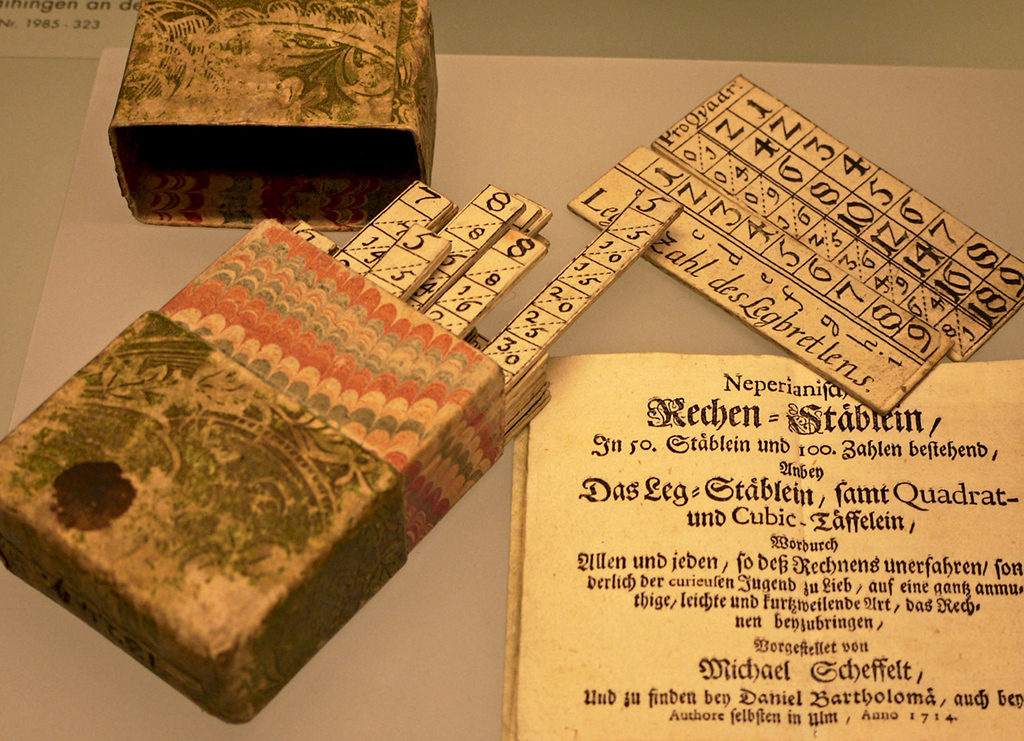 ihingen an de
Nr. 1985 - 323
Pro Quadr:
1 2 3 4 5 6 7 8 9
2 4 6 8 10 12 14 16 18
1 2 3 4 5 6 7 8 9
Zahl des Legbretlens.
7
8
5
8
1/6
5
1/0
1/5
2/0
2/5
3/0
Neperianisch
Rechen = Stäblein /
In 50. Stäblein und 100. Zahlen bestehend,
Anbey
Das Leg = Stäblein, samt Quadrat-
und Cubic-Täffelein,
Wordurch
Allen und jeden, so deß Rechnens unerfahren/ son
derlich der curieusen Jugend zu Lieb, auf eine gantz anmu-
thige, leichte und kurtzweilende Art, das Rech-
nen beyzubringen,
Vorgestellet von
Michael Scheffelt,
Und zu finden bey Daniel Bartholomä, auch bey
Authore selbsten in Ulm, Anno 1714.